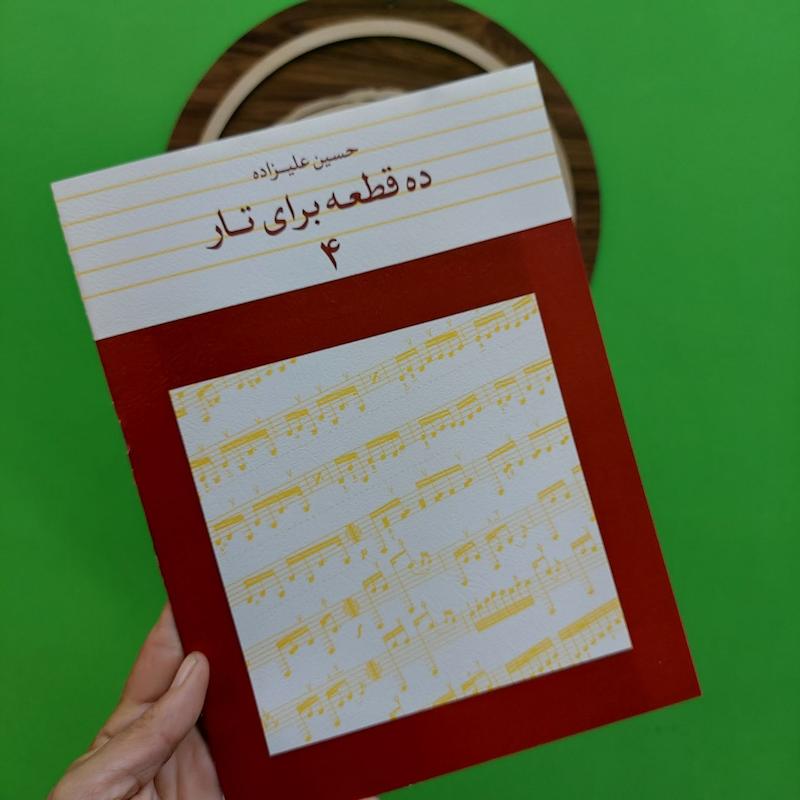 حسین علیزاده
ده قطعه برای تار
۴